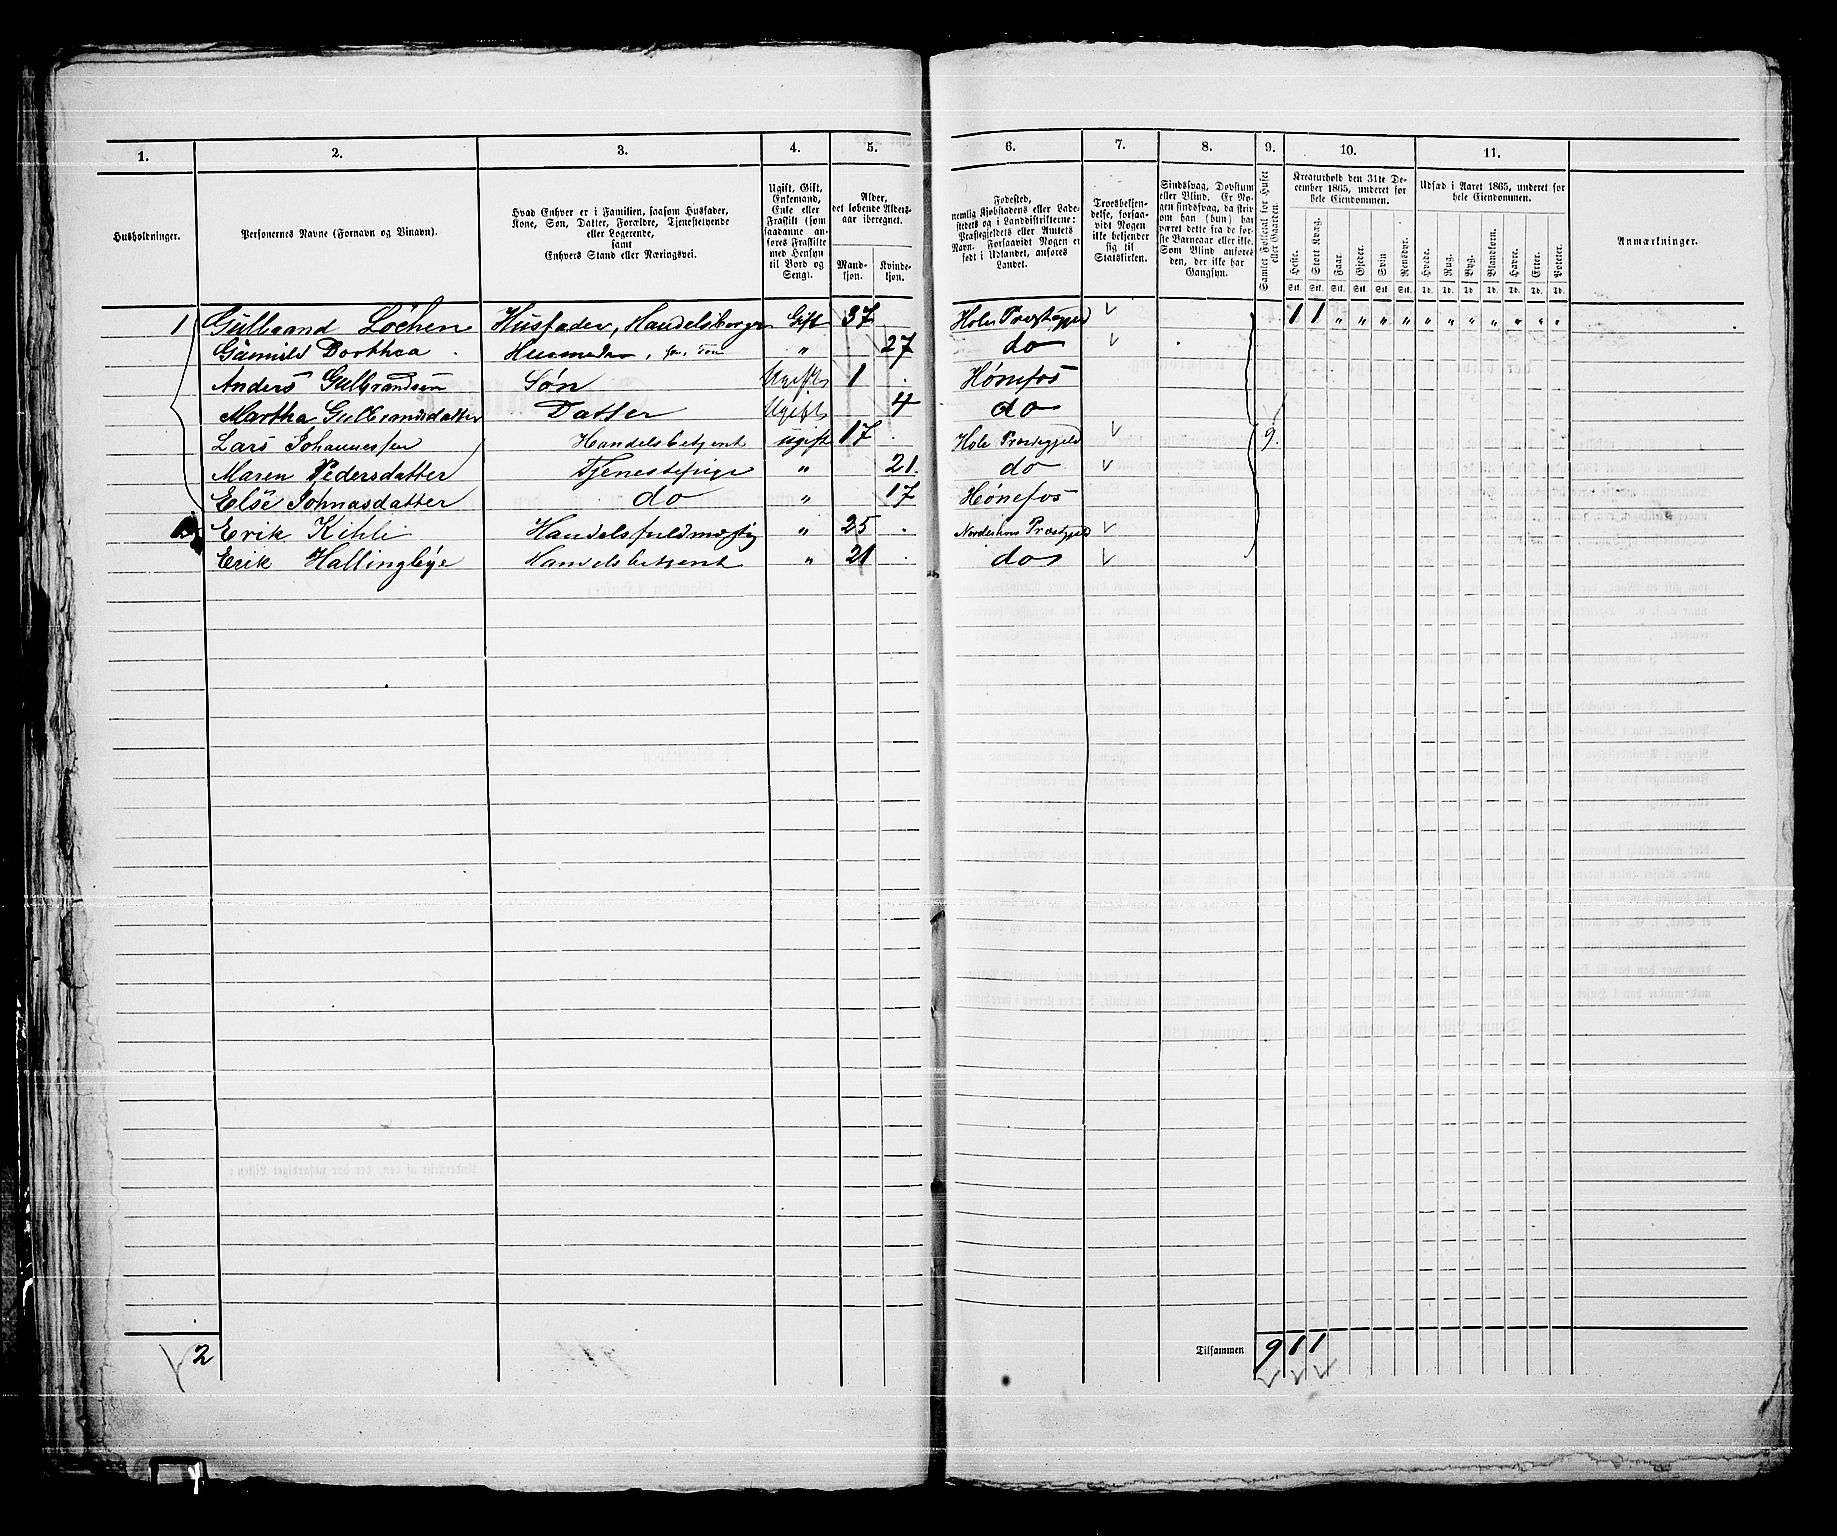 1. 2. 3. 4. 5. 6. 7. 8. 9. 10. 11.
Husholdninger.
Personernes Navne (Fornavn og Tilnavn).
Hvad Enhver er i Familien, saasom Husfader,
Kone, Søn, Datter, Forældre, Tjenestetyende
eller Logerende,
samt
Enhvers Stand eller Næringsvei.
Ugift, Gift,
Enkemand,
Enke eller
Fraskilt (som
saadanne an-
føres Fraskilte
med Hensyn
til Bord og
Seng).
Alder,
det løbende Alders-
aar iberegnet.
Mand-
kjøn.
Kvinde-
kjøn.
Fødested,
nemlig Kjøbstadens eller Lade-
stedets og i Landdistrikterne:
Præstegjeldets eller Amtets
Navn. Forsaavidt Nogen er
født i Udlandet, anføres
Landet.
Troesbekjen-
delse, forsaa-
vidt Nogen
ikke bekjender
sig til
Statskirken.
Sindssvag, Døvstum
eller Blind. Er No-
gen sindssvag, da skriv
om han (hun) har
været dette fra de før-
ste Barneaar eller ikke.
Som Blind anføres
den, der ikke har
Gangsyn.
Samlet Folketal for Huset
eller Gaarden.
Kreaturhold den 31te De-
cember 1865, underet for
hele Eiendommen.
Heste. Stort Kvæg. Faar. Gjeder. Svin Rensdyr.
Stk. Stk. Stk. Stk. Stk. Stk.
Udsæd i Aaret 1865, underet for
hele Eiendommen.
Hvede. Rug. Byg. Blandkorn. Havre. Erter. Poteter.
Td. Td. Td. Td. Td. Td. Td.
Anmærkninger.
1 Gulbrand Löchen Husfader, Handelsborger Gift 37 Hole Præstegjeld 1 1 „ „ „ „ „ „ „ „ „ „ „
Dorthea Husmoder, „ 27 do
Anders Gulbrandsen Søn Ugift 1 Hønefos
Martha Gulbrandsdatter Datter Ugift 4 do
Lars Johannesen Handelsbetjent ugift 17 Hole Præstegjeld 9.
Maren Pedersdatter Tjenestepige „ 21. do
Else Johnasdatter do „ 17 Hønefos
Erik Kihle Handelsfuldmægtig „ 25 Norderhovs Præstegjeld
Erik Hallingbye Handelsbetjent „ 21 do
2 Tilsammen 9 1 1